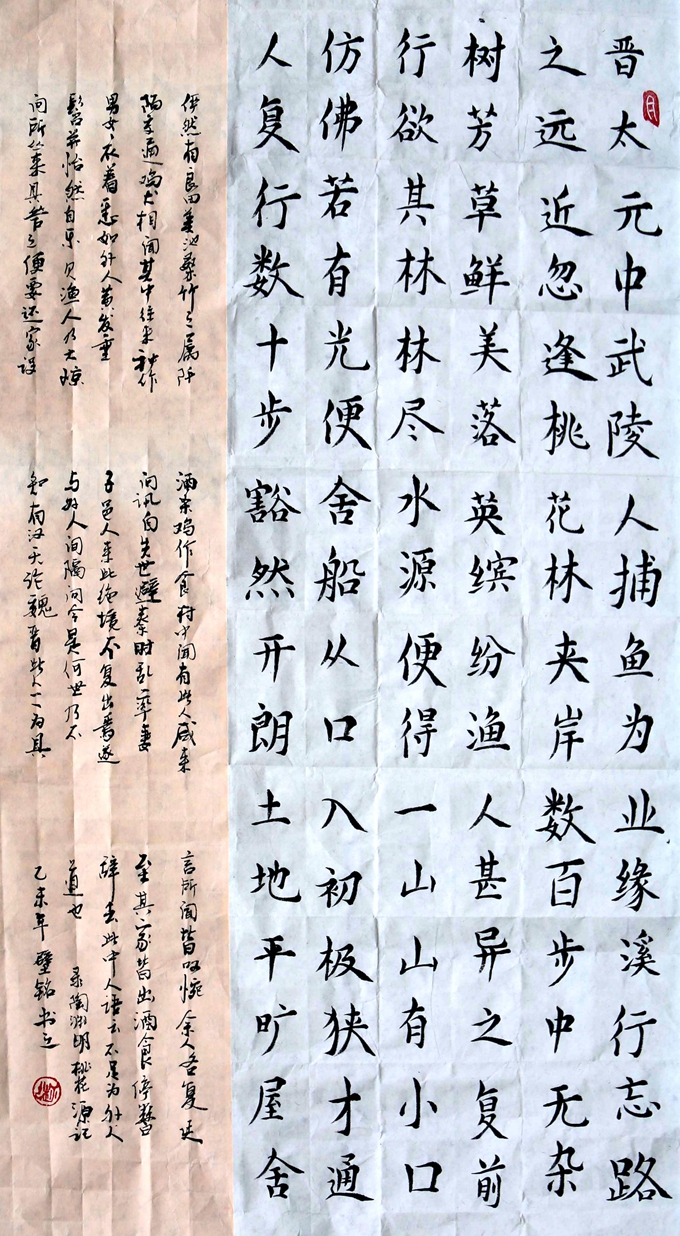 晋太元中武陵人捕鱼为业缘溪行忘路
之远近忽逢桃花林夹岸数百步中无杂
树芳草鲜美落英缤纷渔人甚异之复前
行欲其林林尽水源便得一山山有小口
仿佛若有光便舍船从口入初极狭才通
人复行数十步豁然开朗土地平旷屋舍
俨然有良田美池桑竹之属阡
陌交通鸡犬相闻其中往来种作
男女衣着悉如外人黄发垂
髫并怡然自乐见渔人乃大惊
问所从来具答之便要还家设
酒杀鸡作食村中闻有此人咸来
问讯自先世避秦时乱率妻
子邑人来此绝境不复出焉遂
与外人间隔问今是何世乃不
知有汉无论魏晋此人一一为具
言所闻皆叹惋余人各复延
至其家皆出酒食停数日
辞去此中人语云不足为外人
道也
录陶渊明桃花源记
乙未年 壁铭书之